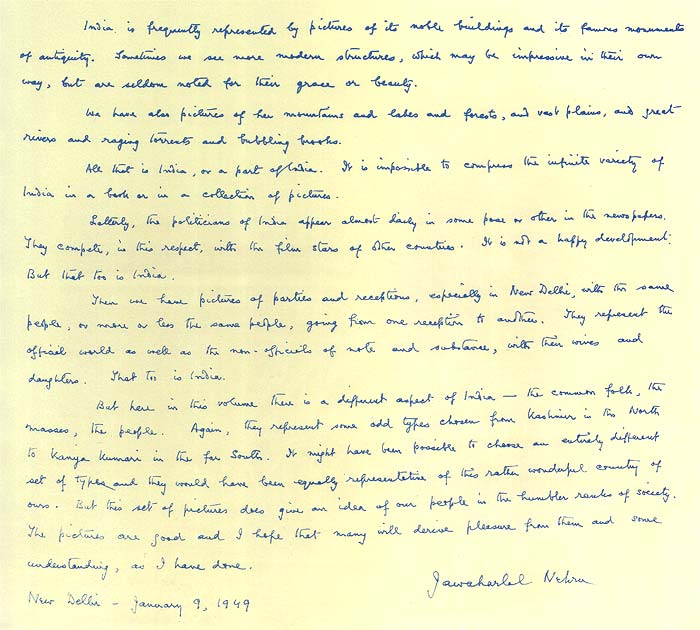 India is frequently represented by pictures of its noble buildings and its famous monuments
of antiquity. Sometimes we see more modern structures, which may be impressive in their own
way, but are seldom noted for their grace or beauty.
We have also pictures of her mountains and lakes and forests, and vast plains, and great
rivers and raging torrents and bubbling brooks.
All that is India, or a part of India. It is impossible to compress the infinite variety of
India in a book or in a collection of pictures.
Latterly, the politicians of India appear almost daily in some pose or other in the newspapers.
They compete, in this respect, with the film stars of other countries. It is not a happy development.
But that too is India.
Then we have pictures of parties and receptions, especially in New Delhi, with the same
people, or more or less the same people, going from one reception to another. They represent the
official world as well as the non-officials of note and substance, with their wives and
daughters. That too is India.
But here in this volume there is a different aspect of India — the common folk, the
masses, the people. Again, they represent some odd types chosen from Kashmir in the North
to Kanya Kumari in the far South. It might have been possible to choose an entirely different
set of types and they would have been equally representative of this rather wonderful country of
ours. But this set of pictures does give an idea of our people in the humbler ranks of society.
The pictures are good and I hope that many will derive pleasure from them and some
understanding, as I have done.
Jawaharlal Nehru
New Delhi - January 9, 1949